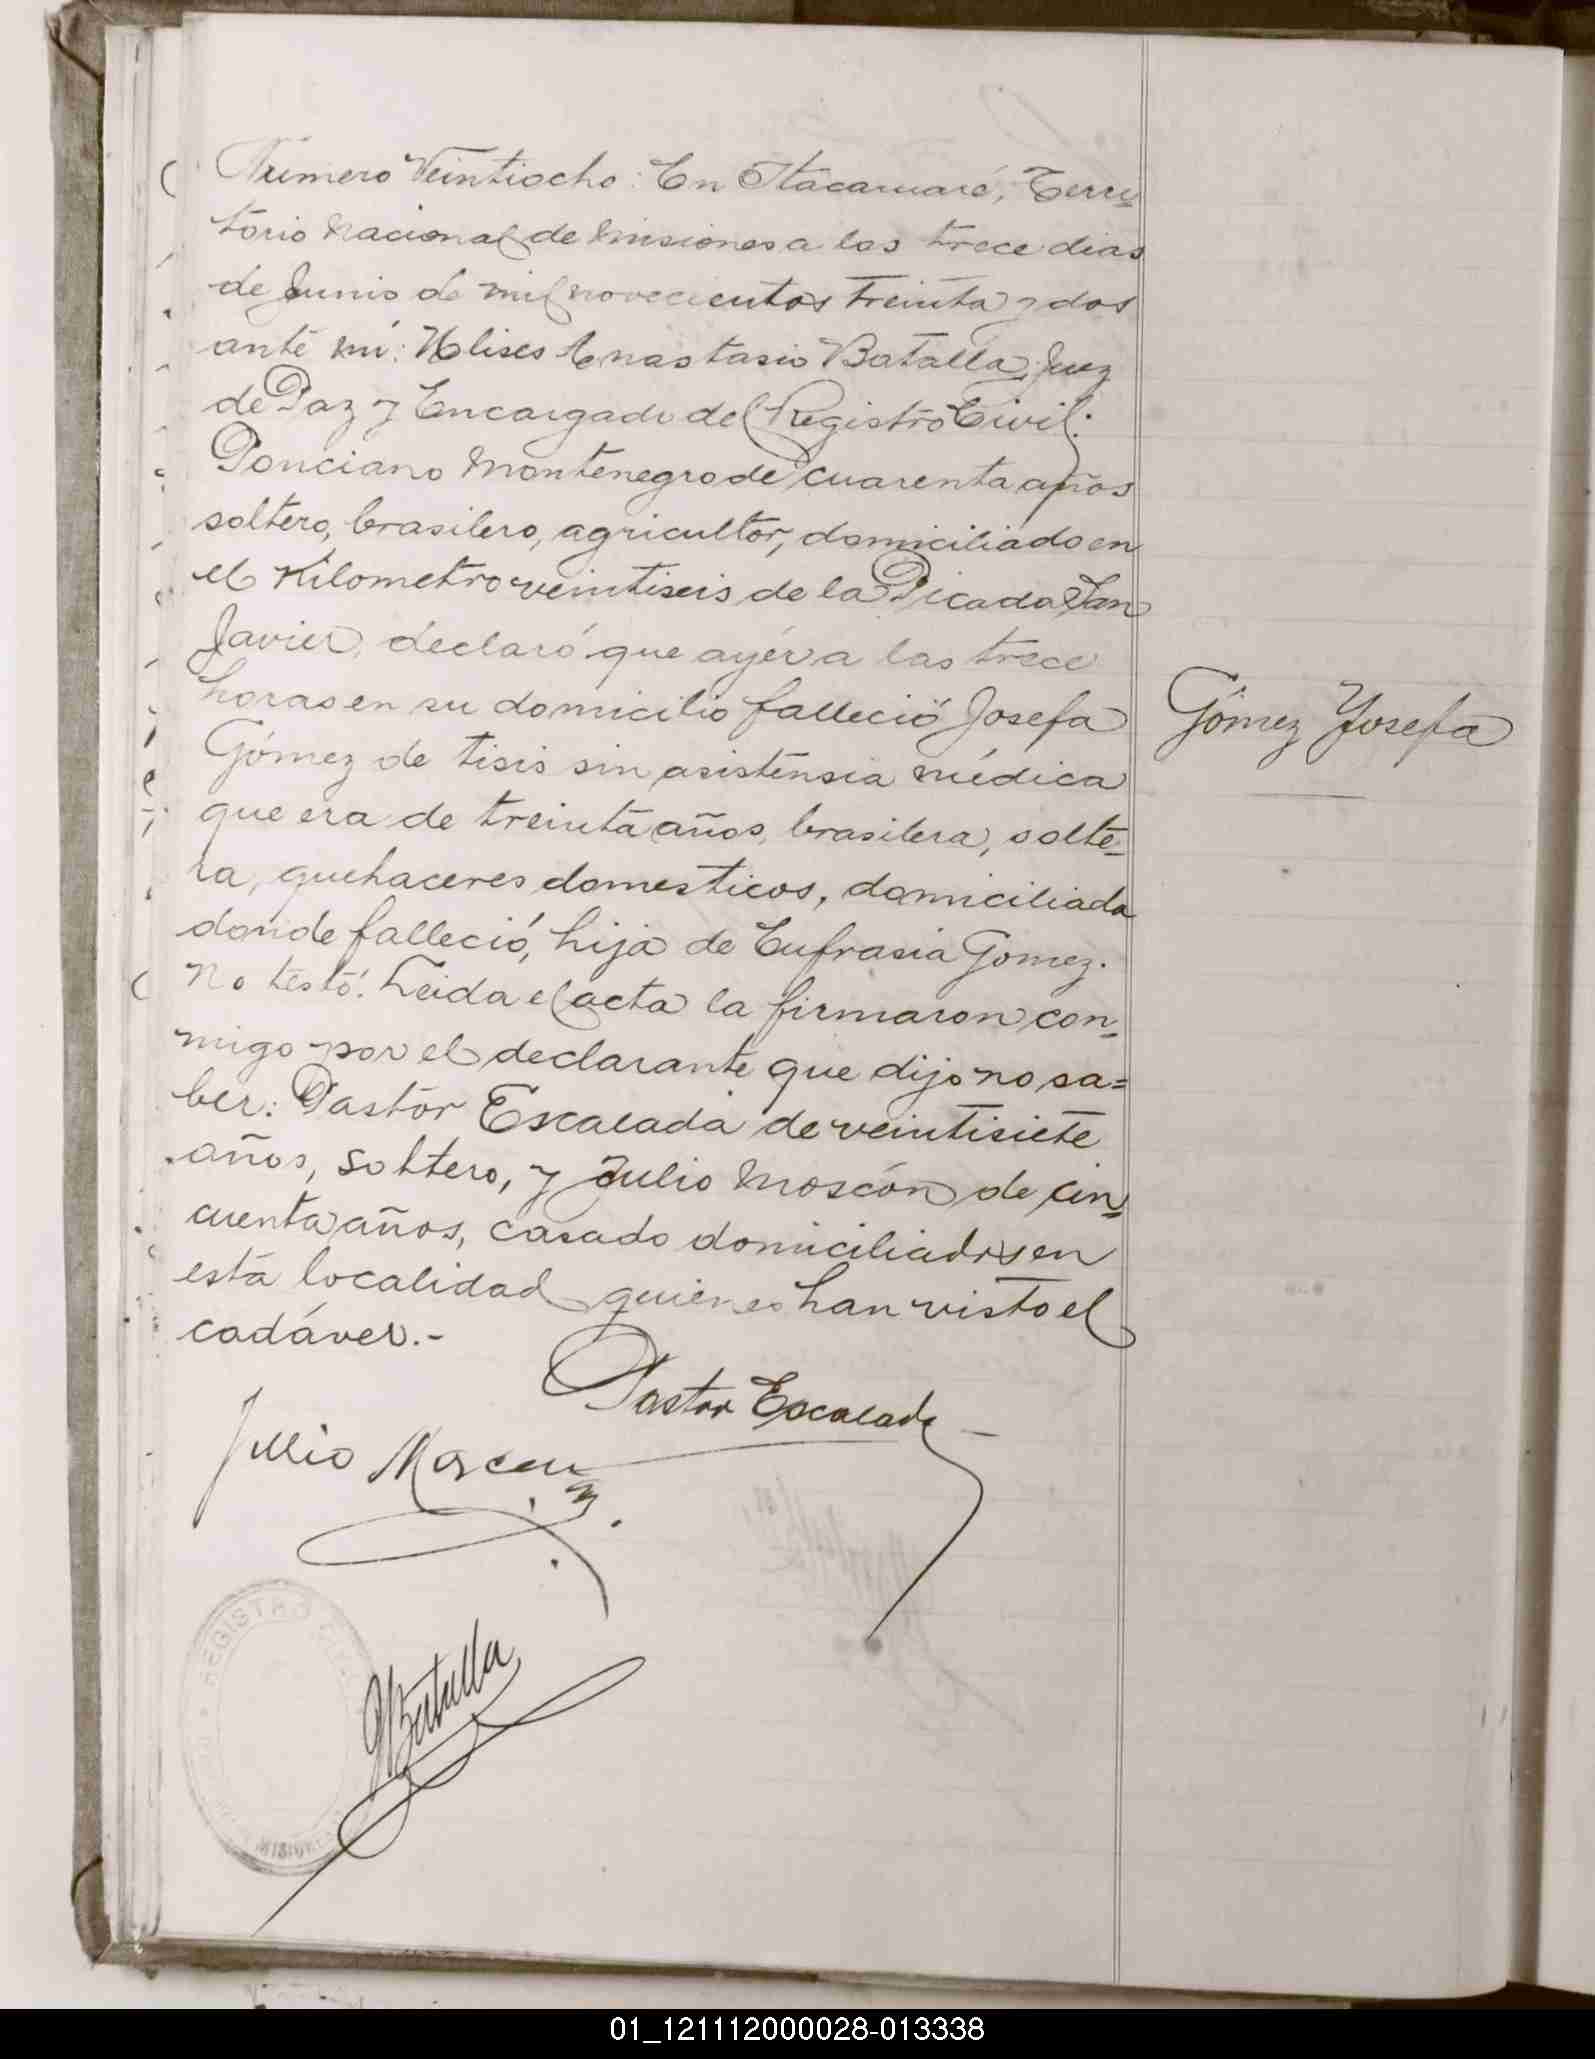 Número Veintiocho: En Itacaruaré, Terri-
torio Nacional de Misiones a los trece dias
de Junio de mil novecientos treinta y dos
ante mi: Ulises Anastasio Batalla, Juez
de Paz y Encargado del Registro Civil:
Ponciano Montenegro de cuarenta años
soltero, brasilero, agricultor, domiciliado en
el Kilometro veintiseis de la Picada San
Javier, declaró que ayér a las trece
horas en su domicilio falleció Josefa
Gómez de tisis sin asistensia médica
que era de treinta años, brasilera, solte-
ra, quehaceres domesticos, domiciliada
donde falleció, hija de Eufrasia Gomez.
No testó. Leida el acta la firmaron con-
migo por el declarante que dijo no sa=
ber: Pastor Escalada de veintisiete
años, soltero, y Julio Moscón de cin-
cuenta años, casado domiciliados en
esta localidad quienes han visto el
cadáver.-
Gómez Josefa
Pastor Escalada
Julio Moscon
Batalla
REGISTRO CIVIL
MISIONES
01_121112000028-013338